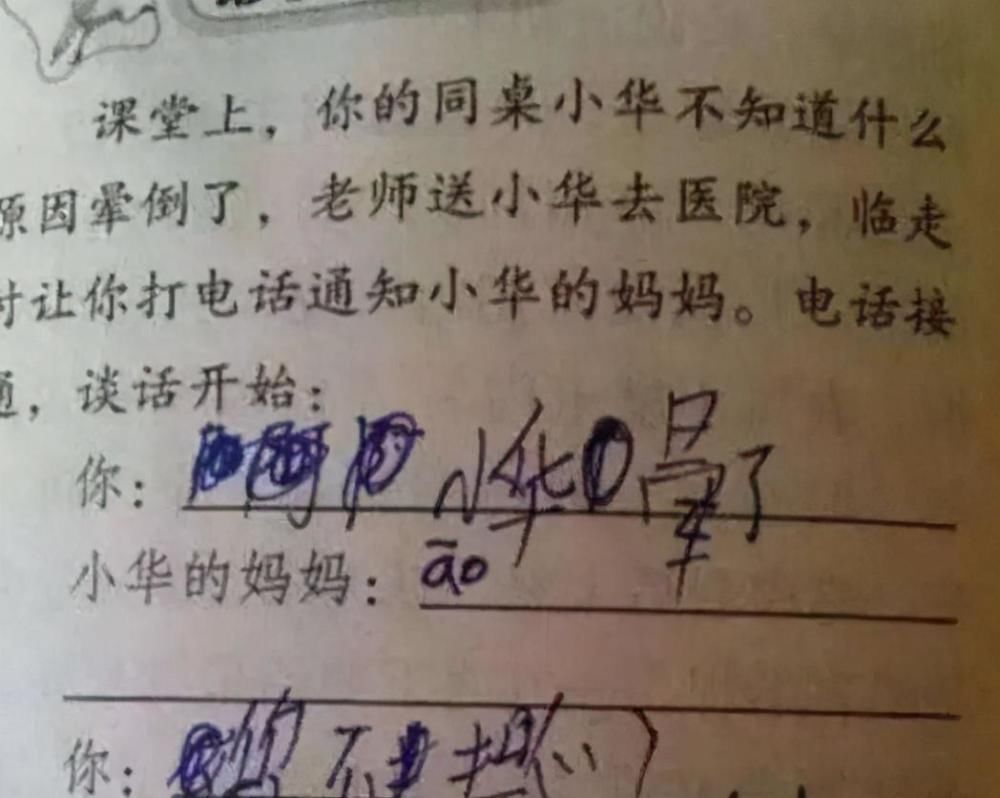 课堂上，你的同桌小华不知道什么
原因晕倒了，老师送小华去医院，临走
时让你打电话通知小华的妈妈。电话接
通，谈话开始：
你：小华晕了
小华的妈妈：āo
你：不担心